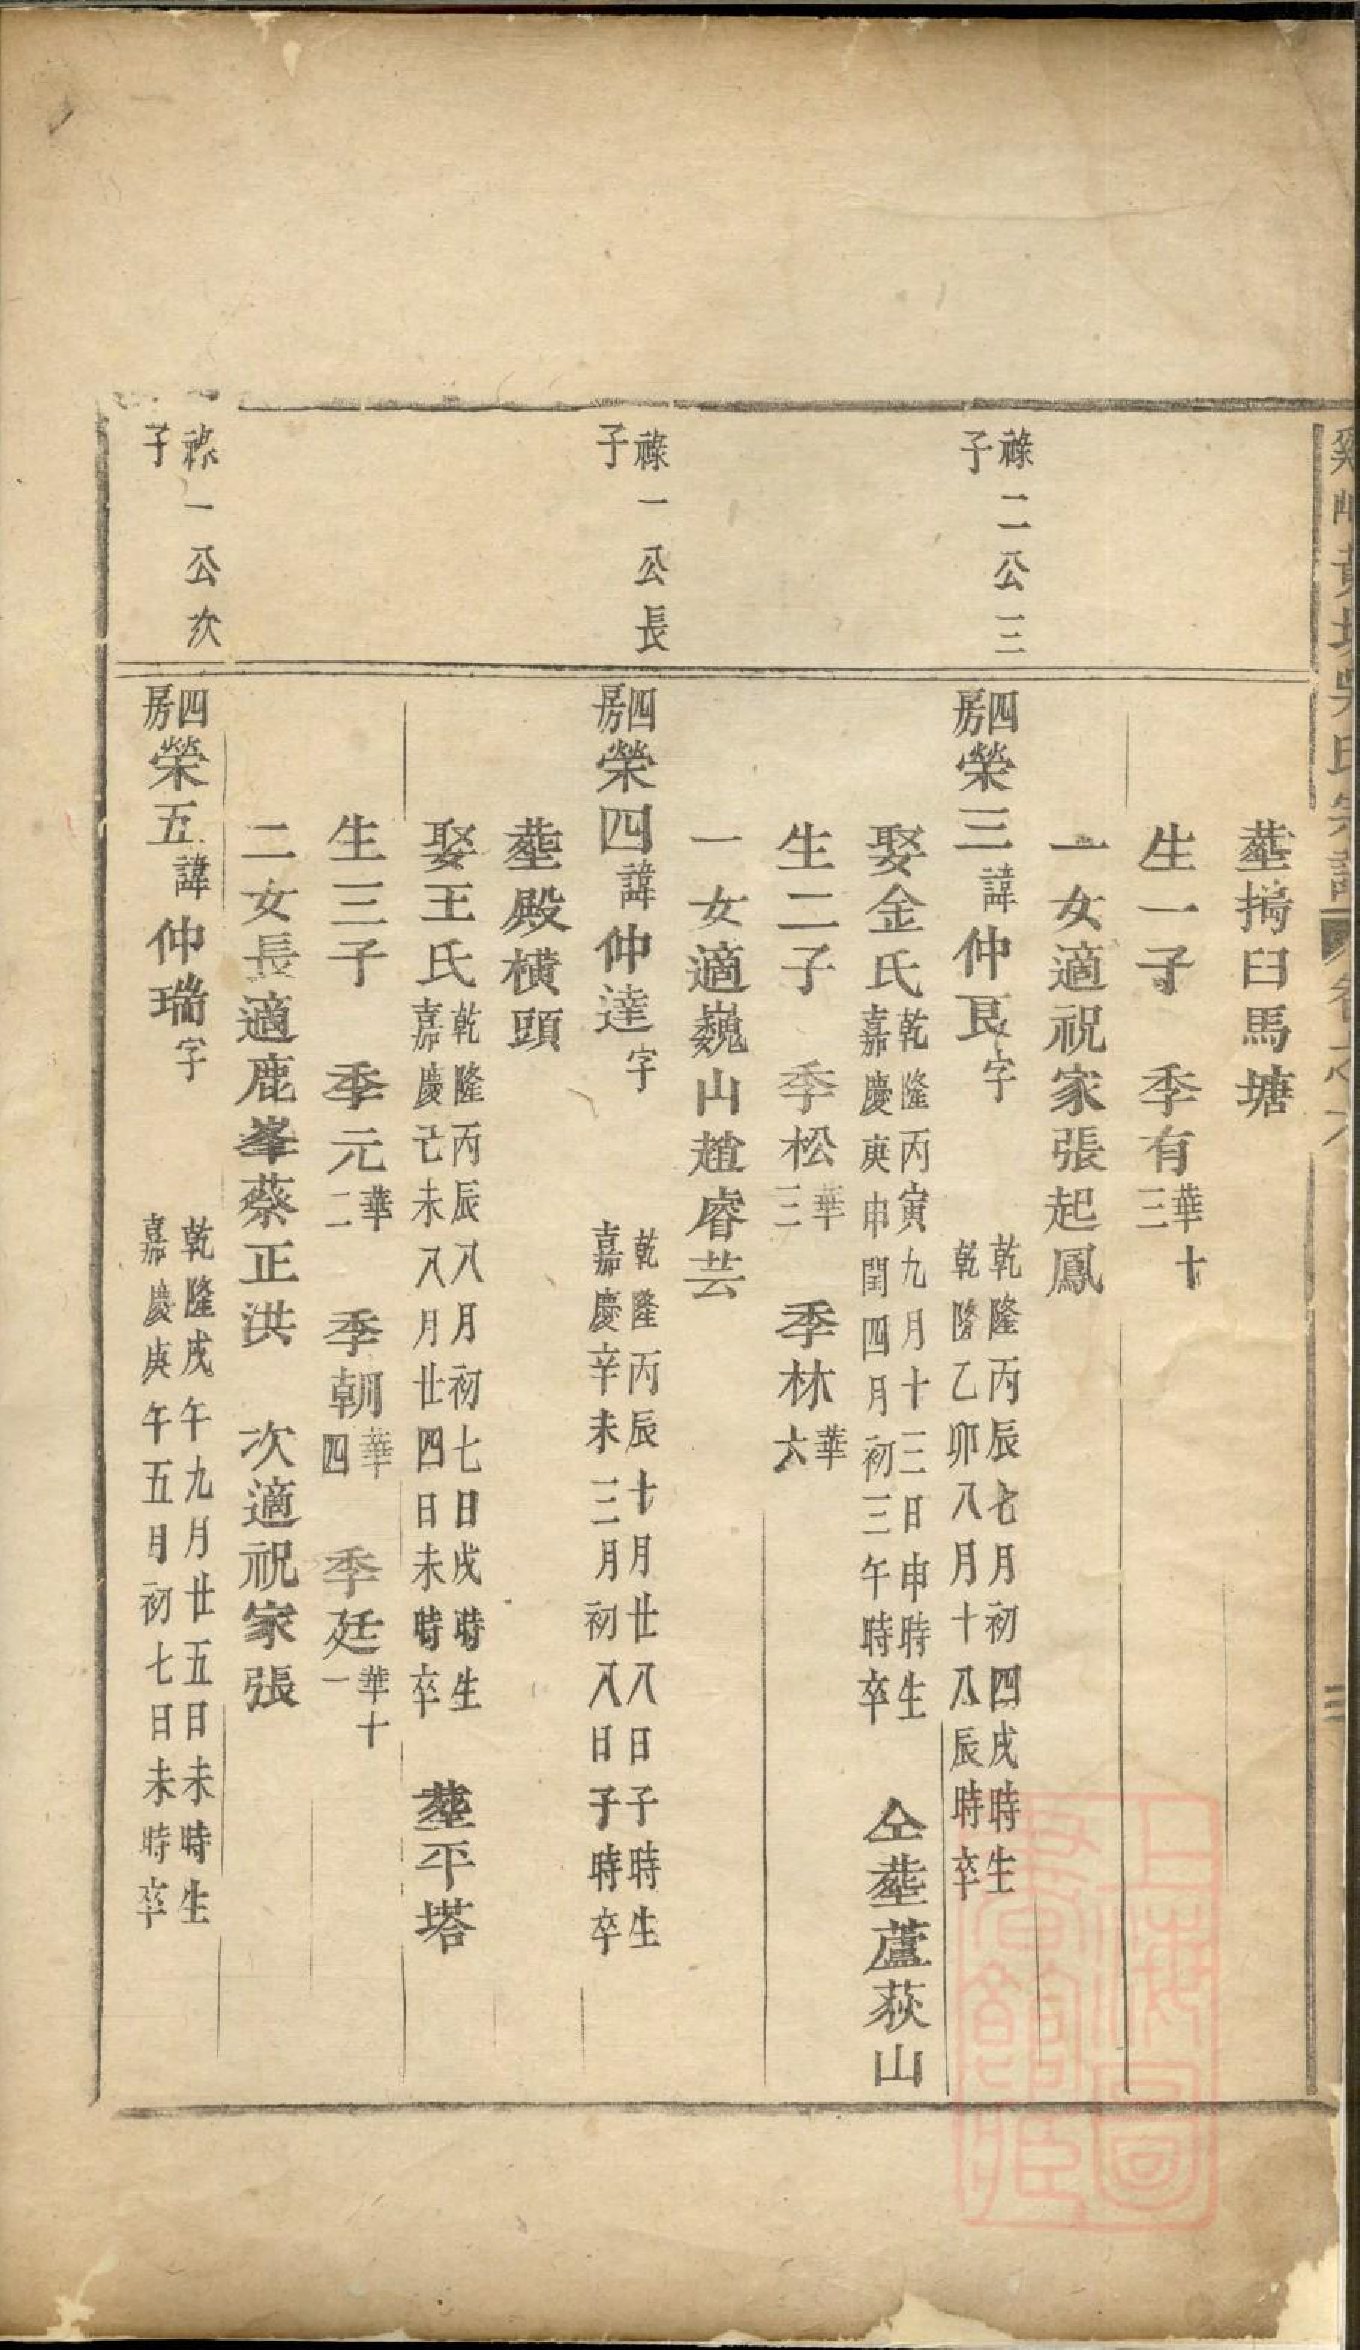 黃坑吳氏宗譜 卷之六
塟搗臼馬塘
生一子 季有華十三
一女適祝家張起鳳
祿二公三子
四房榮三諱仲良字 乾隆丙辰七月初四戌時生 乾隆乙卯八月十八辰時卒
娶金氏 乾隆丙寅九月十三日申時生 嘉慶庚申閏四月初三午時卒 仝塟蘆荻山
生二子 季松華三 季林華六
一女適巍山趙睿芸
祿一公長子
四房榮四諱仲達字 乾隆丙辰十月廿八日子時生 嘉慶辛未三月初八日子時卒
塟殿橫頭
娶王氏 乾隆丙辰八月初七日戌時生 嘉慶己未八月廿四日未時卒 塟平塔
生三子 季元華二 季朝華四 季廷華十一
二女長適鹿峯蔡正洪 次適祝家張
祿一公次子
四房榮五諱仲瑞字 乾隆戊午九月廿五日未時生 嘉慶庚午五月初七日未時卒
上海圖書館藏